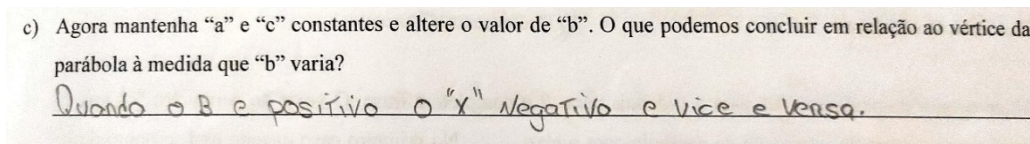 c) Agora mantenha “a” e “c” constantes e altere o valor de “b”. O que podemos concluir em relação ao vértice da
parábola à medida que “b” varia?
Quando o B e positivo o "x" Negativo e vice e versa.